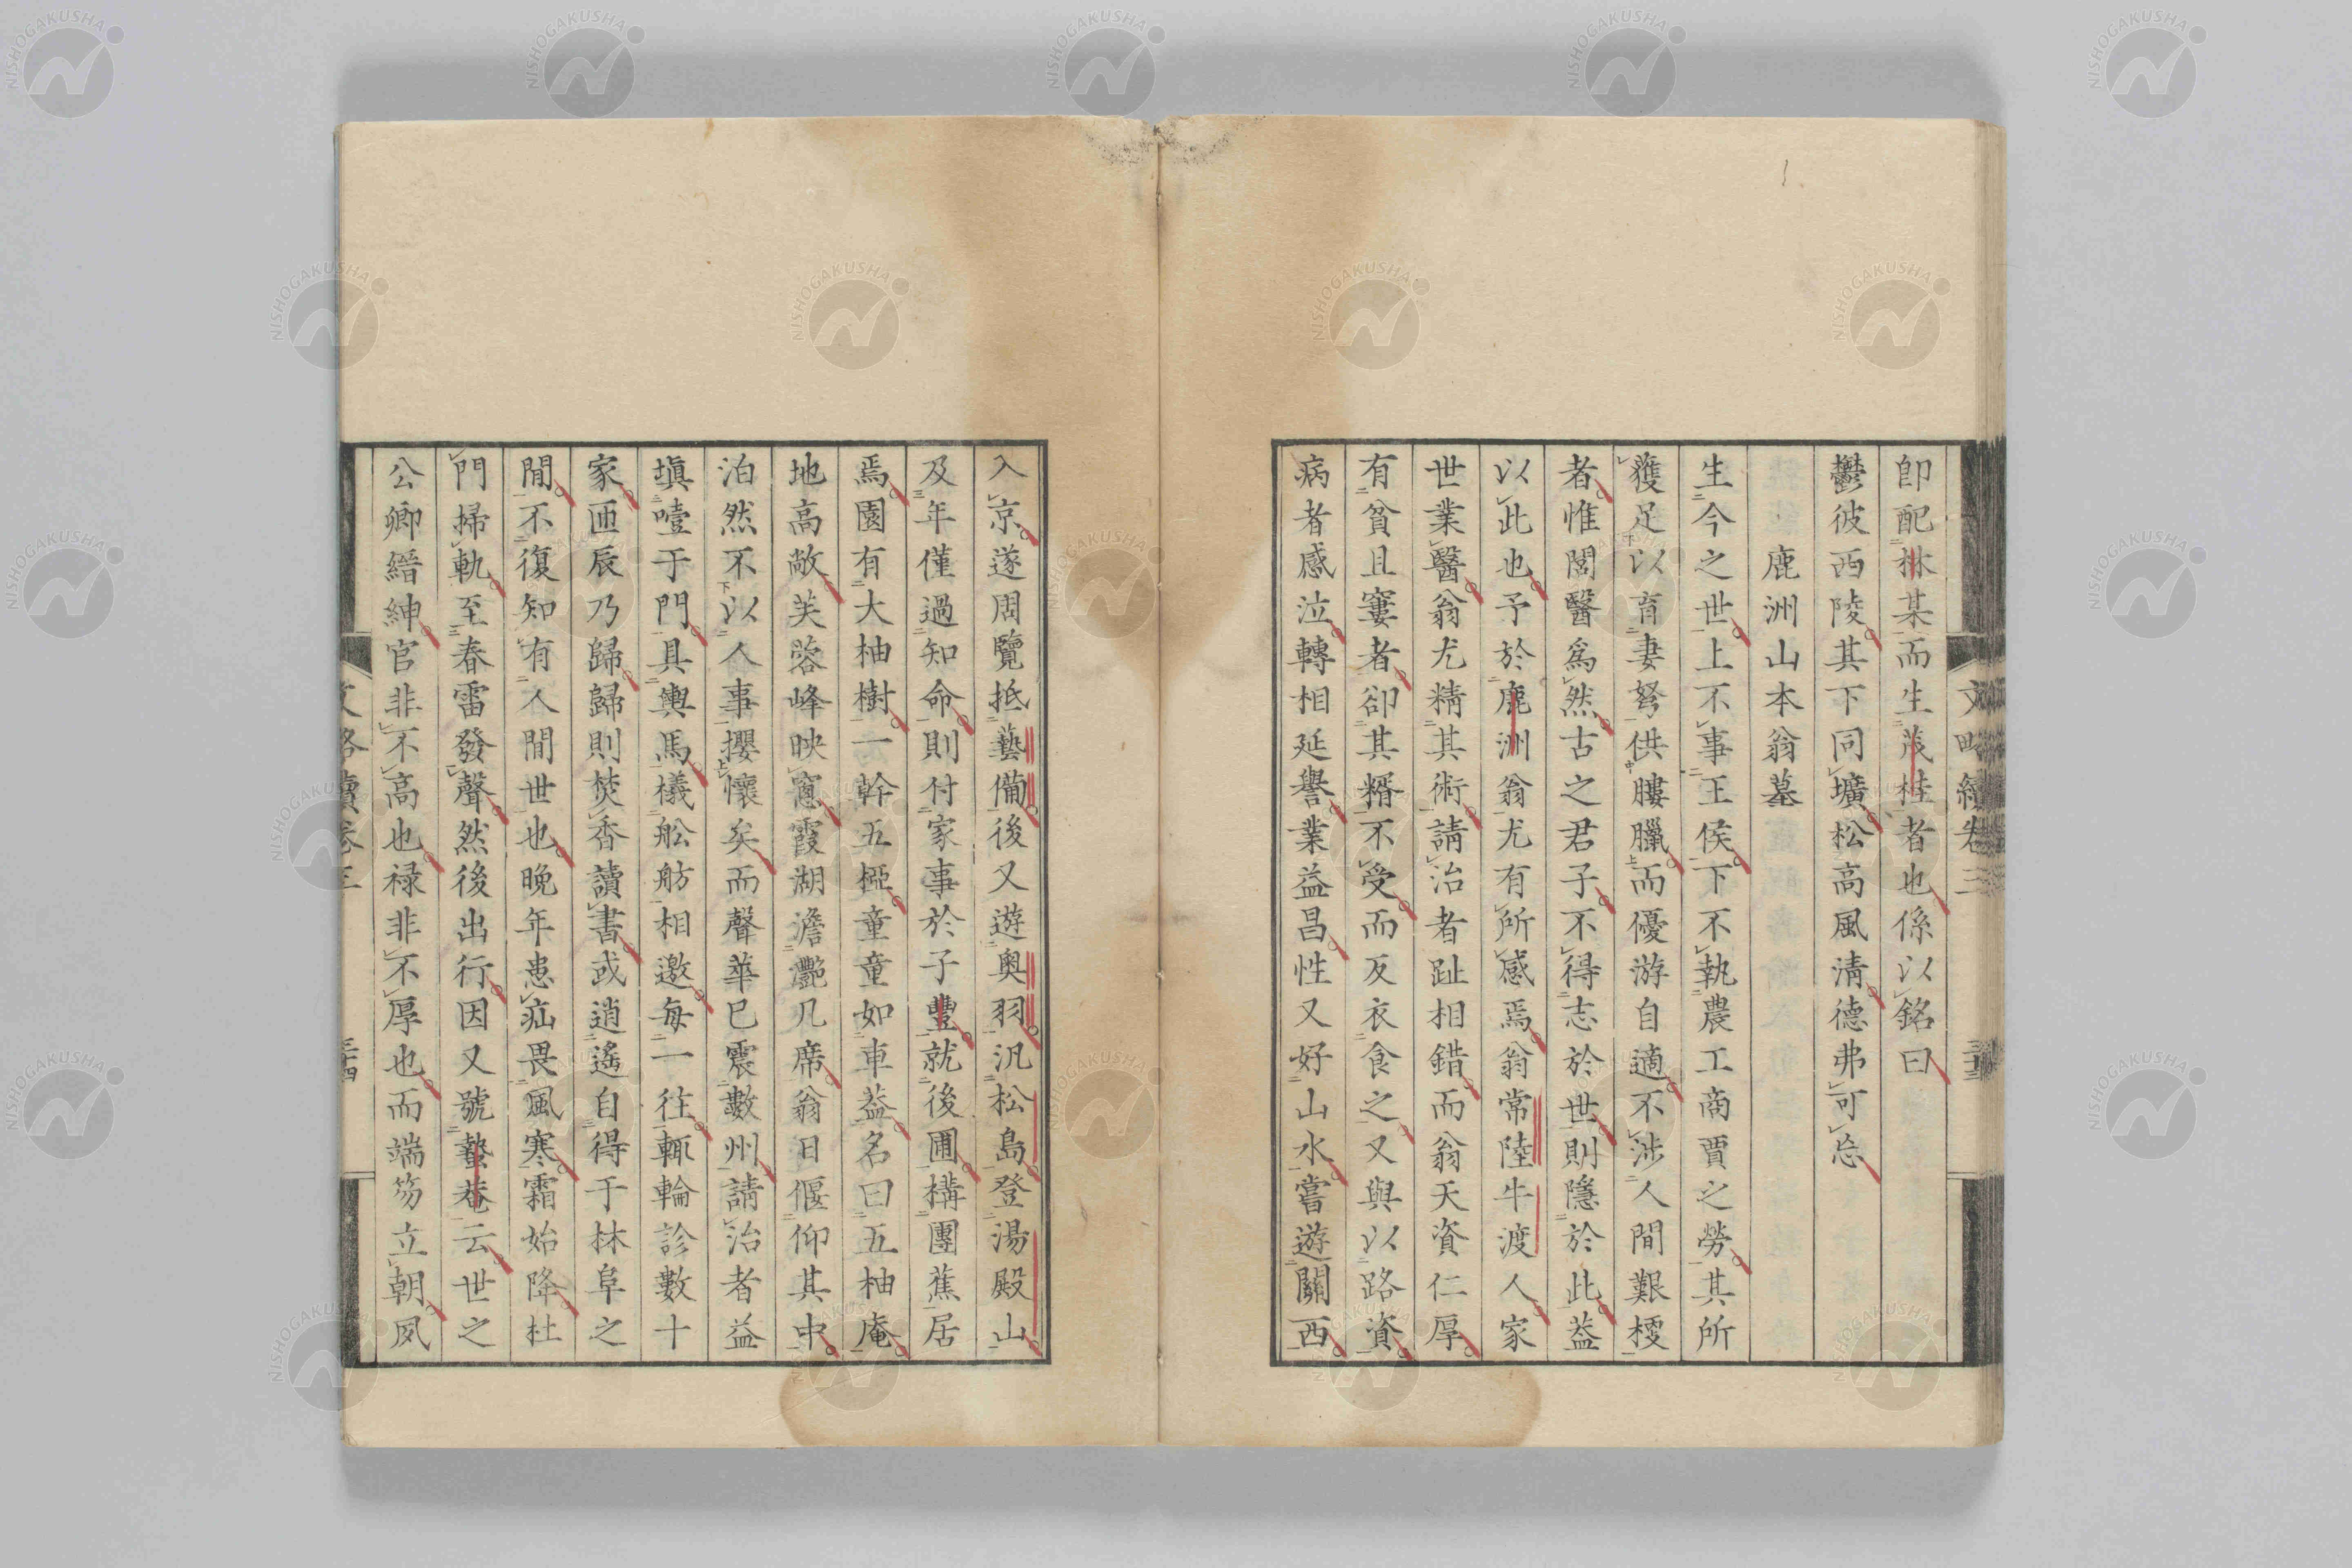 卽配林某而生茂桂者也係以銘曰
鬱彼西陵其下同壙松高風淸德弗可忘
鹿洲山本翁墓
生今之世上不事王侯下不執農工商賈之勞其所
獲足以育妻孥供膢臘而優游自適不涉人間艱𣓨
者惟閭醫爲然古之君子不得志於世則隱於此葢
以此也予於鹿洲翁尤有所感焉翁常陸牛渡人家
世業醫翁尤精其術請治者趾相錯而翁天資仁厚
有貧且窶者卻其糈不受而反衣食之又與以路資
病者感泣轉相延譽業益昌性又好山水嘗遊關西
入京遂周覽抵藝備後又遊奧羽汎松島登湯殿山
及年僅過知命則付家事於子豐就後圃構團蕉居
焉園有大柚樹一幹五椏童童如車葢名曰五柚庵
地高敞芙蓉峰映窻霞湖澹灔几席翁日偃仰其中
泊然不以人事攖懷矣而聲華已震數州請治者益
塡噎于門具輿馬檥舩舫相邀每一往輒輪診數十
家匝辰乃歸歸則焚香讀書或逍遙自得于林阜之
閒不復知有人間世也晩年患疝畏風寒霜始降杜
門掃軌至春雷發聲然後出行因又號蟄菴云世之
公卿縉紳官非不高也禄非不厚也而端笏立朝夙
文略續卷三
文略續卷三 三十四
NISHOGAKUSHA